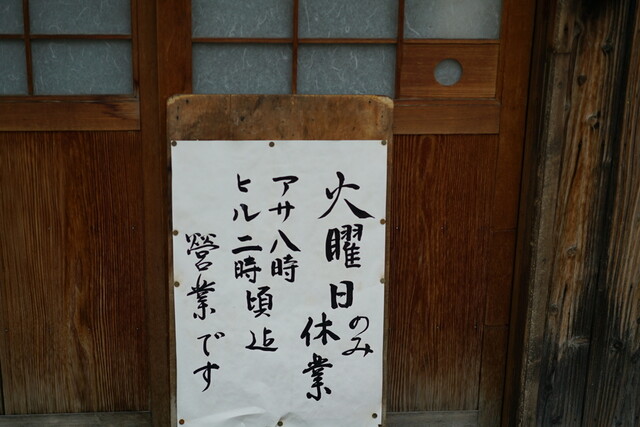 火曜日のみ
休業
アサ八時
ヒル二時頃迠
營業です